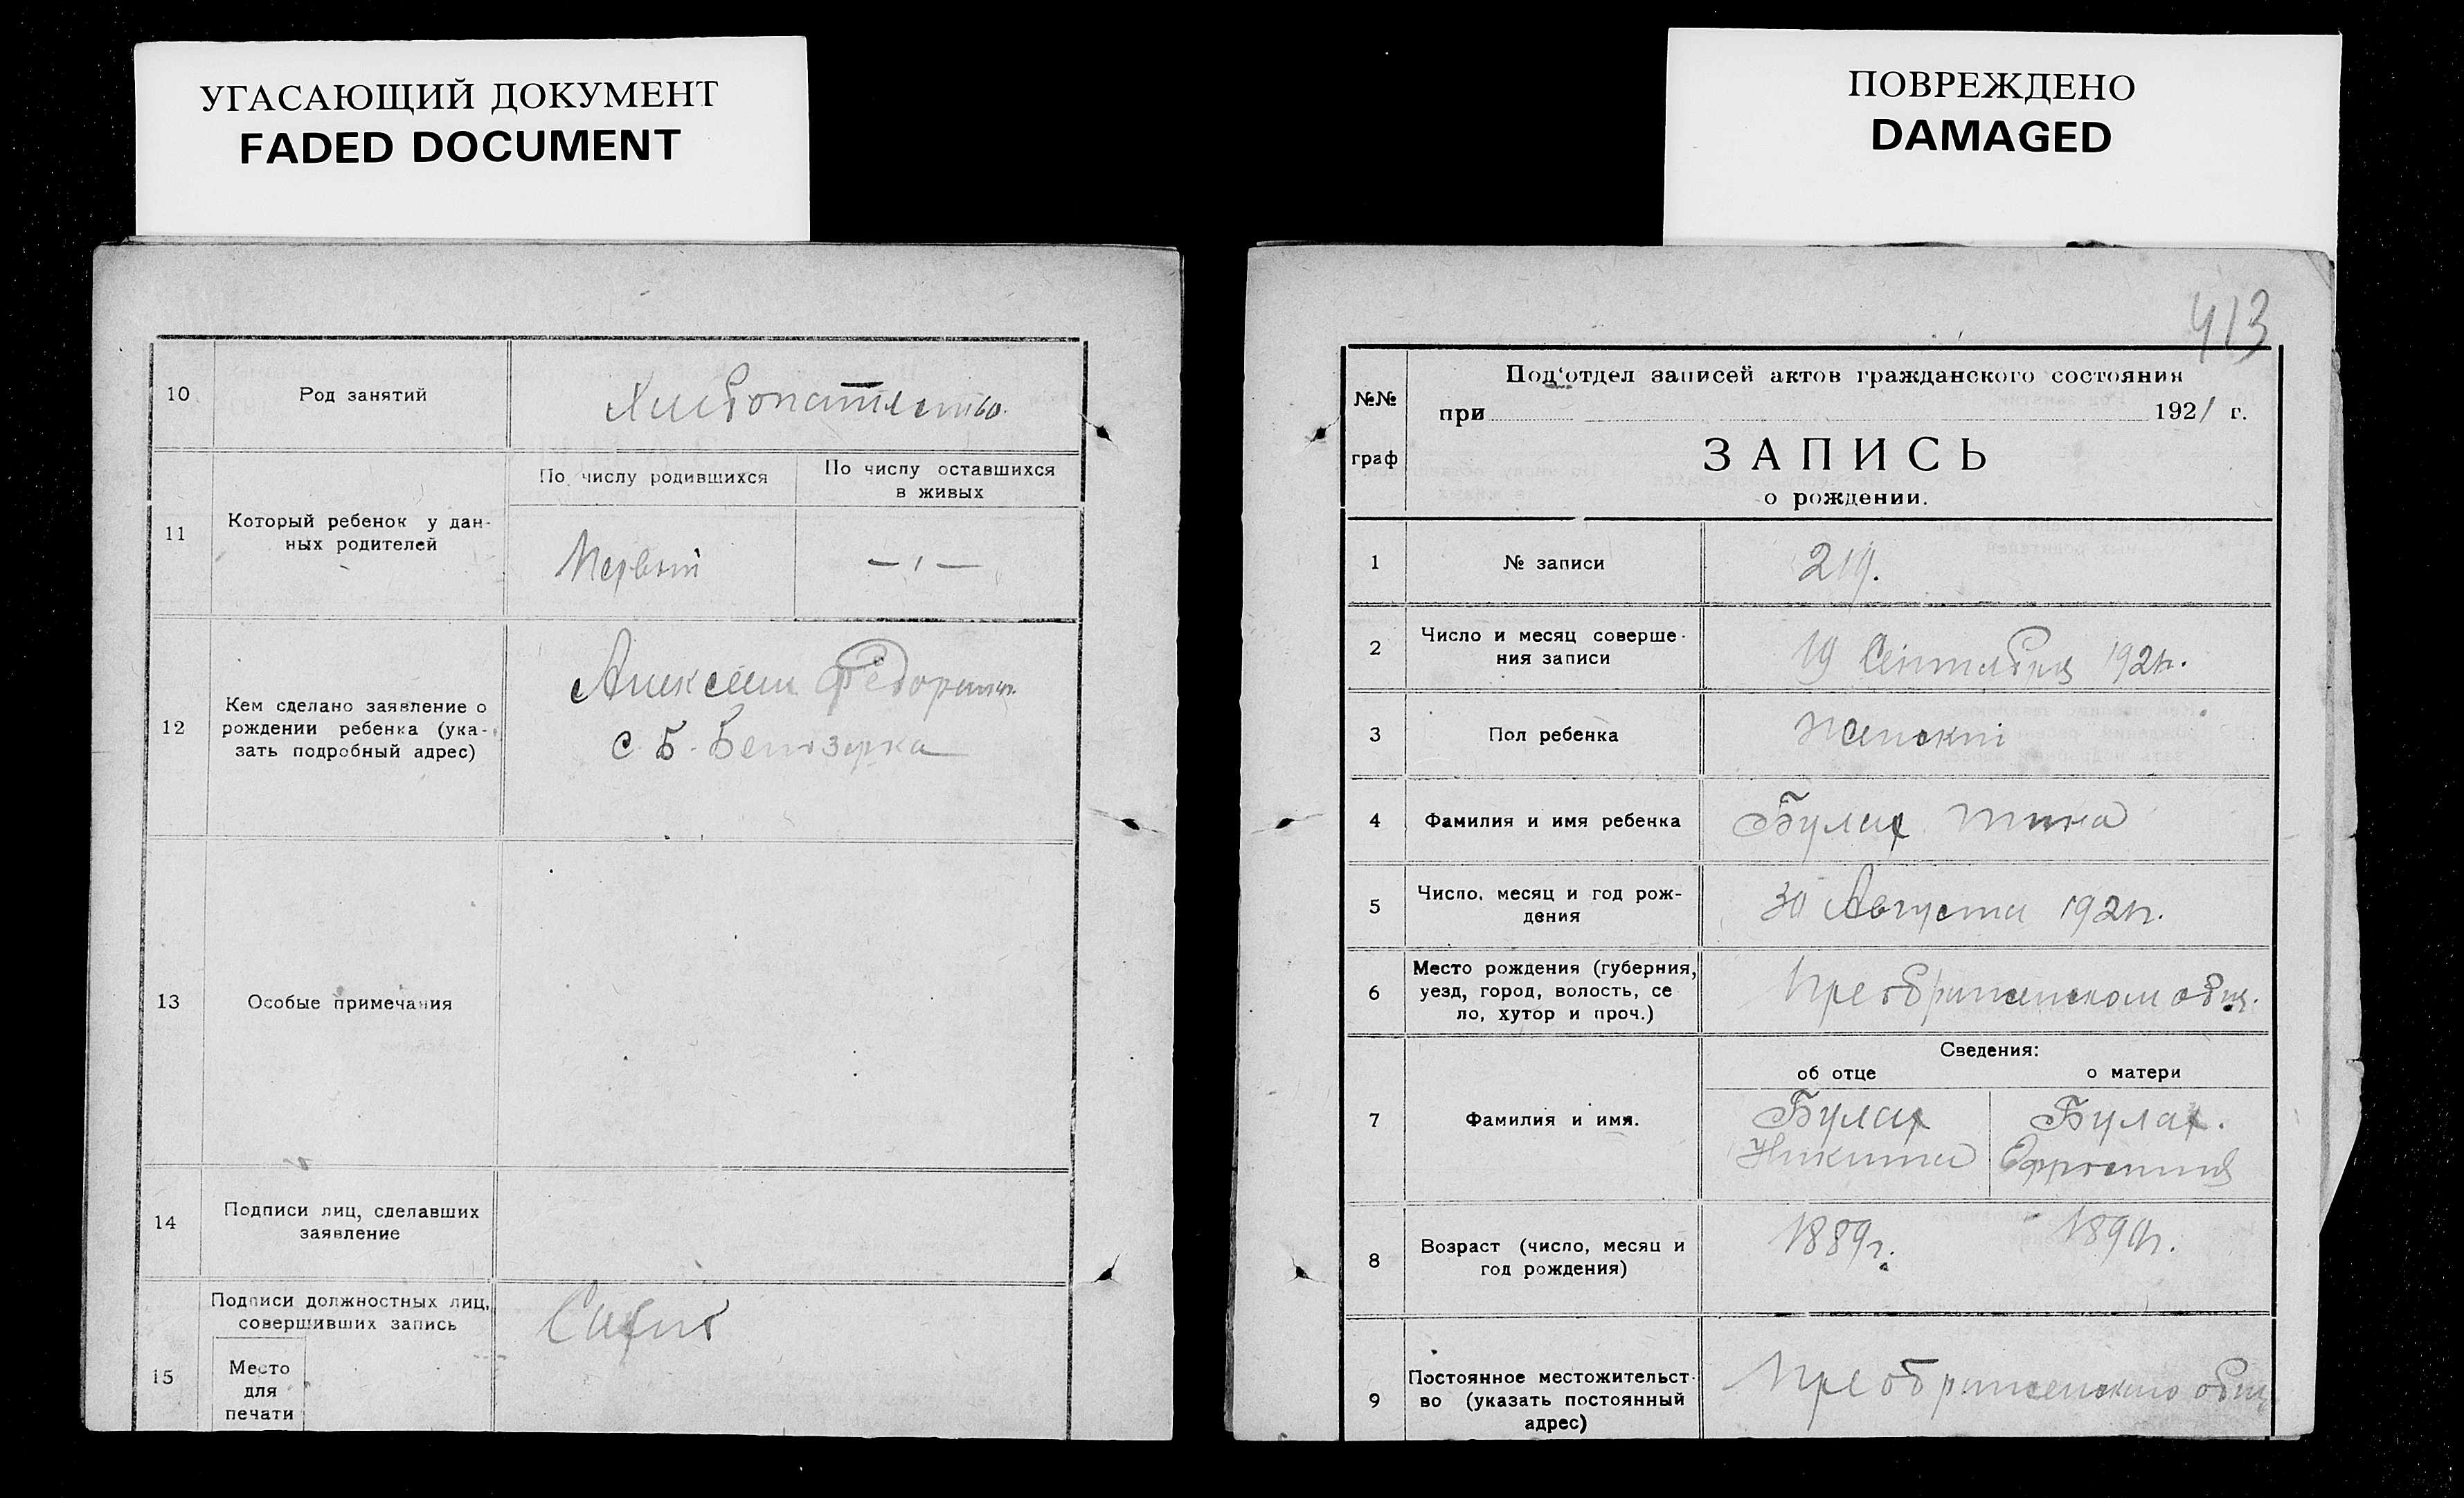 УГАСАЮЩИЙ ДОКУМЕНТ
FADED DOCUMENT
10
Род занятий
Хлебопашество.
11
Который ребенок у дан-
ных родителей
По числу родившихся
По числу оставшихся
в живых
Первый
— ı —
12
Кем сделано заявление о
рождении ребенка (ука-
зать подробный адрес)
Алексеем
С Б. Белозерка
13
Особые примечания
14
Подписи лиц, сделавших
заявление
15
Подписи должностных лиц,
совершивших запись
Место
для
печати
ПОВРЕЖДЕНО
DAMAGED
413
№№
граф
Под'отдел записей актов гражданского состояния
при 1921 г.
ЗАПИСЬ
о рождении.
1
№ записи
219.
2
Число и месяц соверше-
ния записи
19 Сентября 1921г.
3
Пол ребенка
Женский
4
Фамилия и имя ребенка
Булах
5
Число, месяц и год рож-
дения
30 Августа 1921г.
6
Место рождения (губерния,
уезд, город, волость, се
ло, хутор и проч.)
Преображенском общ.
7
Фамилия и имя.
Сведения:
об отце
о матери
Булах
Никита
Булах.
8
Возраст (число, месяц и
год рождения)
1889г.
9
Постоянное местожительст-
во (указать постоянный
адрес)
общ